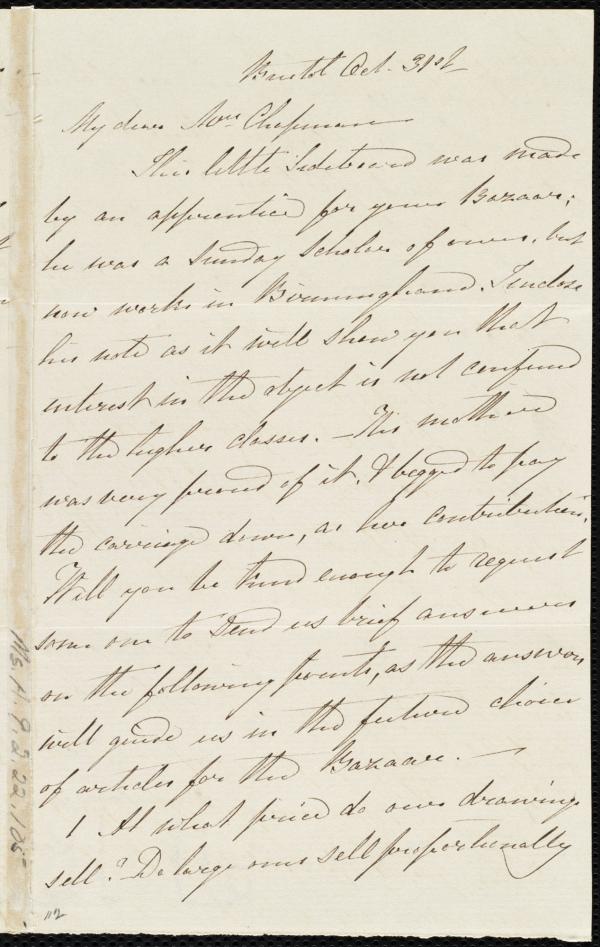 Bristol Oct. 31st
My dear Mrs Chapman
This little Sideboard was made
by an apprentice for your Bazaar;
he was a Sunday Scholar of ours, but
now works in Birmingham. I enclose
his note as it will show you that
interest in the object is not confined
to the higher classes. – His mother
was very proud of it, & begged to pay
the carriage down, as her contribution.
Will you be kind enough to request
some one to send us brief answers
on the following points, as the answers
will guide us in the future choice
of articles for the Bazaar. —
1 At what price do our drawings
sell? Do large ones sell proportionally
Ms. A. 9. 2. 22. 105
112